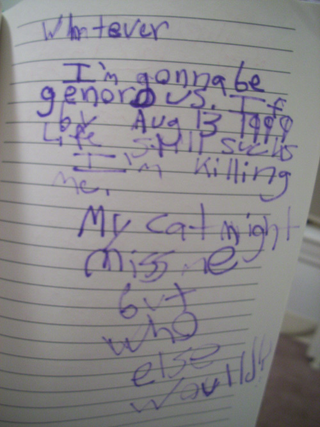 Whatever
I'm gonna be
generous. If
by Aug 13 1999
Life still sucks
I'm killing
me.
My cat might
miss me
but
who
else
would